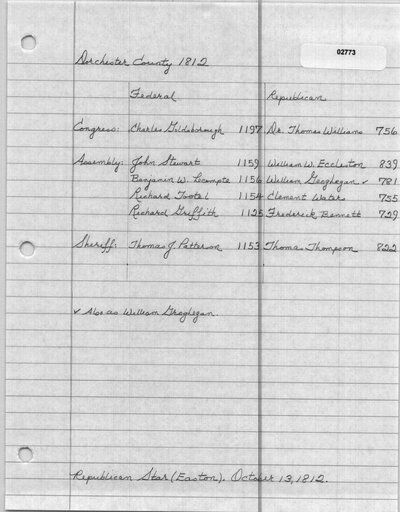 02773
Dorchester County 1812
Federal Republican
Congress: Charles Goldsborough 1197 Dr. Thomas Williams 756
Assembly: John Stewart 1159 William W. Eccleston 839
Benjamin W. Lecompte 1156 William Geoghegan ✓ 781
Richard Tootel 1154 Clement Waters 755
Richard Griffith 1125 Frederick Bennett 729
Sheriff: Thomas J. Patterson 1153 Thomas Thompson 822
✓ Also as William Groghegan.
Republican Star (Easton). October 13, 1812.